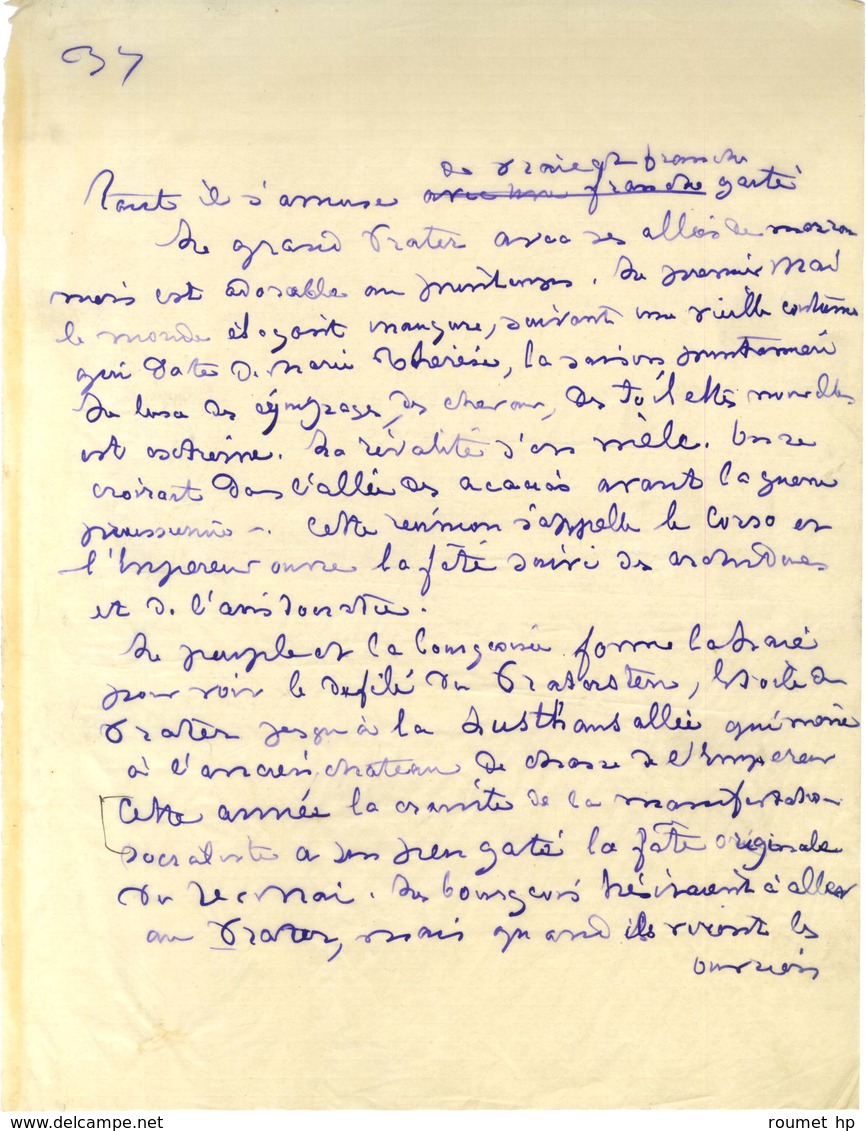 37
de vraie et franche
tout il s'amuse avec une franche gaité
Le grand Prater avec ses allées de marron
niers est adorable au printemps. Le premier Mai
le monde élégant inaugure, suivant une vieille coutume
qui date de Marie Thérèse, la saison printanière
Le luxe des équipages, des chevaux, des toilettes nouvelles
est extrême. La rivalité s'en mêle. On se
croirait dans l'allée des acacias avant la guerre
prussienne. Cette réunion s'appelle le Corso et
l'Empereur ouvre la fête suivi des archiducs
et de l'aristocratie.
Le peuple et la bourgeoisie forme la haie
pour voir le défilé du Praterstern, l'étoile du
Prater jusqu'à la Lusthausallée qui mène
à l'ancien chateau de chasse de l'Empereur
Cette année la crainte de la manifestation
socialiste a un peu gaté la fête originale
du 1er Mai. Les bourgeois hésitaient à aller
au Prater, mais quand ils virent les
ouvriers
roumet hp